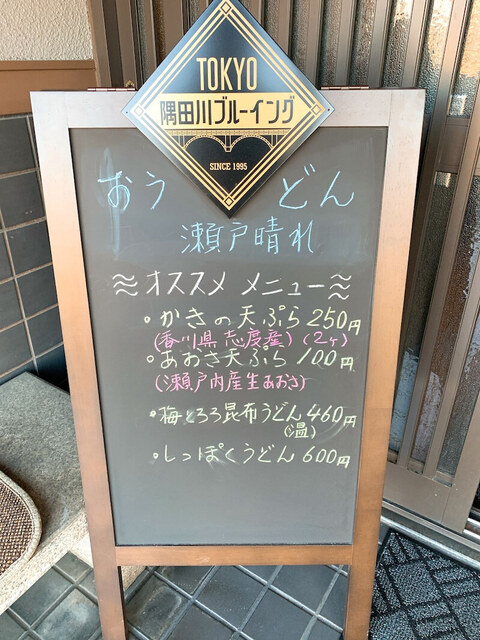 TOKYO
隅田川ブルーイング
SINCE 1995
おうどん
瀬戸晴れ
≈オススメ メニュー≈
・かきの天ぷら 250円
(香川県 志度産) (2ヶ)
・あおさ天ぷら 100円
(瀬戸内産生あおさ)
・梅とろろ昆布うどん 460円
(温)
・しっぽくうどん 600円